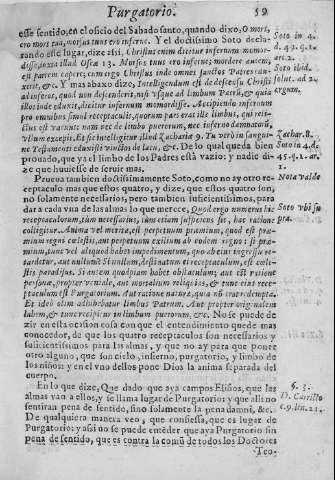 Purgatorio. 59
esse sentido, en el oficio del Sabado santo, quando dixo, O mors,
ero mors tua, morsus tuus ero inferne. Y el doctissimo Soto decla-
rando este lugar, dize assi, Christus enim dicitur infernum momor-
disse, iuxta illud Oseæ 13. Morsus tuus ero inferne; mordere autem,
est partem capere; cum ergo Christus inde omnes sanctos Patres eduxerit, &c.
Y mas abaxo dize, Intelligendum est de descensu Christi
ad inferna, quod non descenderit, nisi vsque ad limbum Patrũ, & quia
illos inde eduxit, dicitur infernum momordisse. Accipiendo infernum
pro omnibus simul receptaculis, quorum pars erat ille limbus,
vllum excepit. Et sic intelligitur illud Zachariæ 9. Tu verò in sangui-
ne Testamenti eduxisti vinctos de lacu, &c. De lo qual queda bien
prouado, que ya el limbo de los Padres està vazio; y nadie di-
ze que huuiesse de seruir mas.
Prueua tambien doctissimamente Soto, como no ay otro re-
ceptaculo mas que estos quatro, y dize, que estos quatro son,
no solamente necessarios, pero tambien suficientissimos, para
dar a cada vna de las almas lo que merece,
receptaculorum, tùm necessarius, tùm etiam sufficiens sit, hac ratione
colligitur. Anima vel meruit, est perpetuum præmium, quod est præ-
mium regni cælestis, aut perpetuum exilium ab eodem regno: si præ-
mium, tunc vel aliquod habet impedimentum, quo abeius ingressu re-
tardetur, aut nullum? Si nullum, destinatum ei receptaculum, est cæle-
stis paradisus. Si autem quodpiam habet obstaculum; aut est ratione
personæ, propter veniale, aut mortalium reliquias, & tunc eius rece-
ptaculum est Purgatorium. Aut ratione naturæ, quia nõ erat redempta.
Et ideo olim adhibebatur limbus Patrum. Aut propter originalem
labem, & tunc recipitur in limbum puerorum, &c. No se puede de
zir en esta ocasion cosa con que el entendimiento quede mas
conocedor, de que los quatro receptaculos son necessarios y
suficientissimos para las almas, y que no ay para que poner
otro alguno, que son cielo, infierno, purgatorio, y limbo de
los niños: y en el vno dellos pone Dios la anima separada del
cuerpo.
En lo que dize, Que dado que aya campos Elisios, que las
almas van a ellos, y se llama lugar de Purgatorio: y que alli no
sentiran pena de sentido, sino solamente la pena damni, &c.
De qualquiera maneca veo, que confiessa, que es lugar de
Purgatorio: y assi no se puede enteder que aya Purgatorio sin
pena de sentido, que es contra la comũ de todos los Doctores
Teo-
Soto in 4.
d. 43. q. 1.
ar. 2.
Soto ibid.
solut. ad 2.
argum.
Zachar. 8.
Soto in 4. d.
45. q. 1. ar.
2.
Nota valdè
Soto vbi su
pra.
§. 3.
D. Carrillo
c. 9. lin. 21.